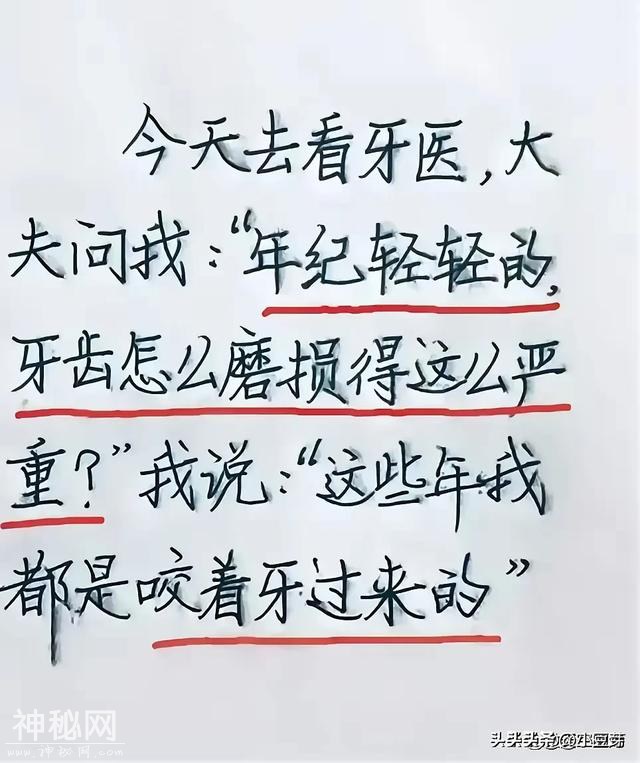 今天去看牙医,大
夫问我:“年纪轻轻的,
牙齿怎么磨损得这么严
重?”我说:“这些年我
都是咬着牙过来的”
神秘网